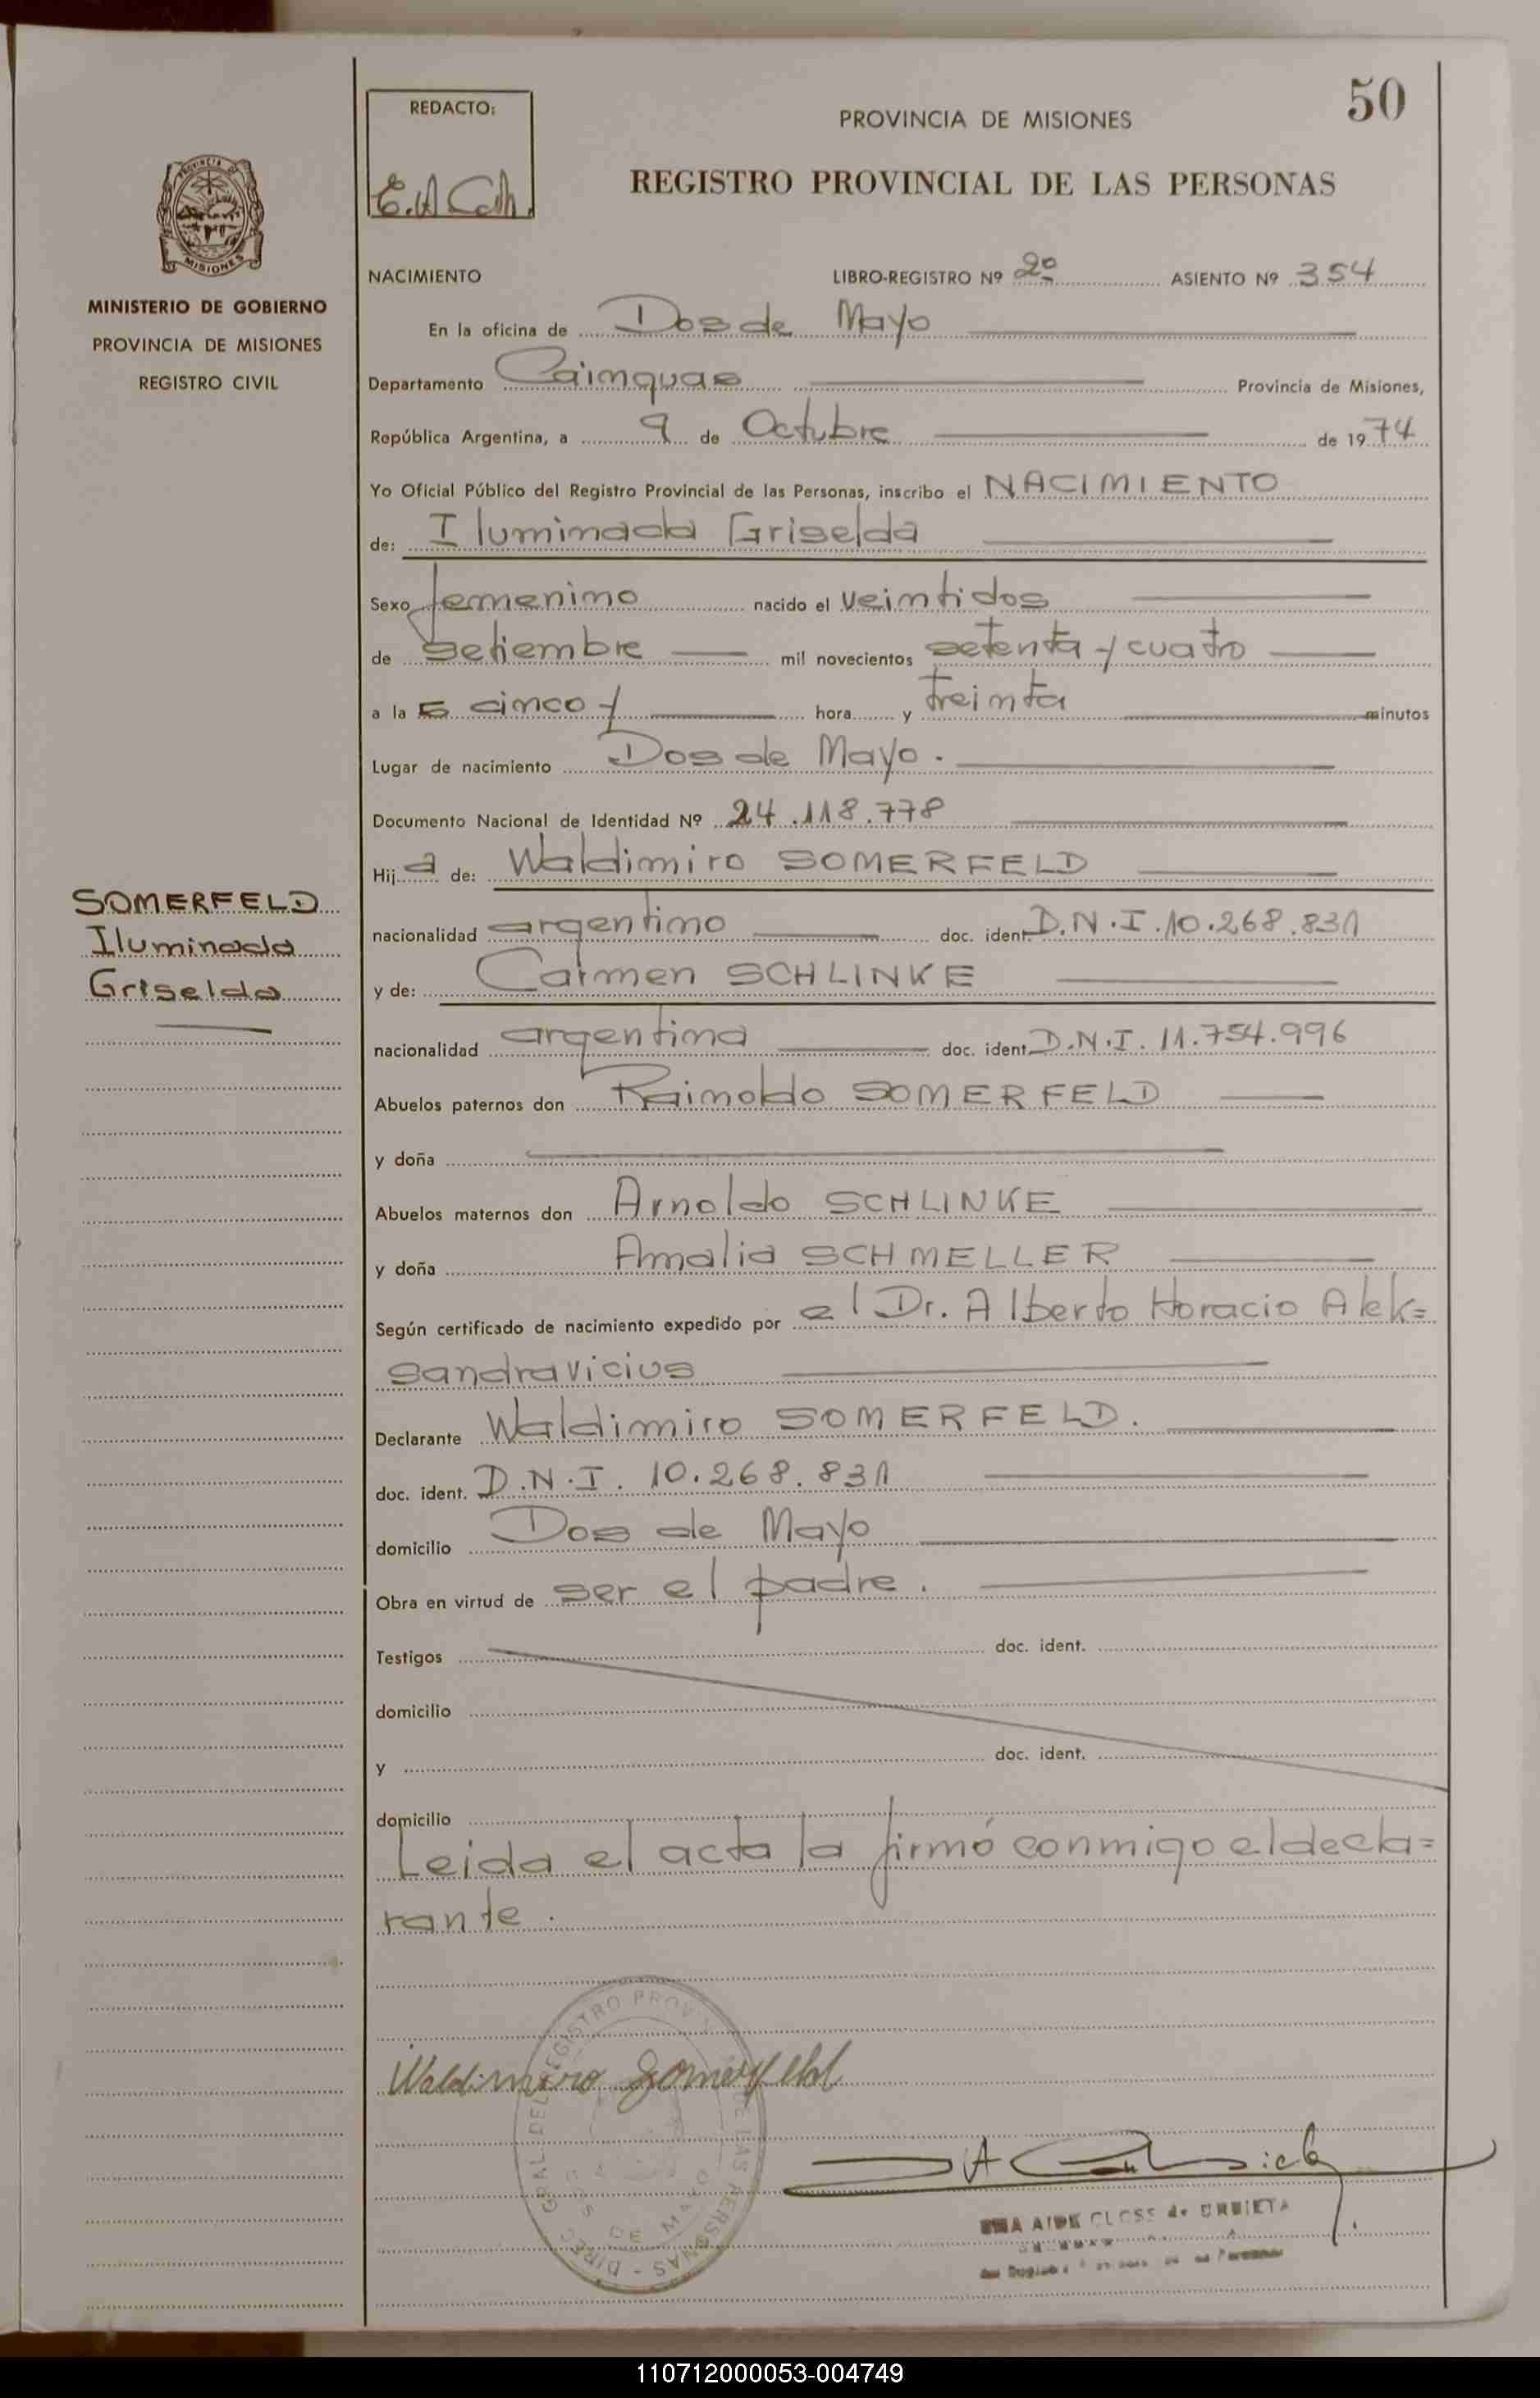 50
REDACTO:
PROVINCIA DE MISIONES
REGISTRO PROVINCIAL DE LAS PERSONAS
PROVINCIA DE
MISIONES
MINISTERIO DE GOBIERNO
PROVINCIA DE MISIONES
REGISTRO CIVIL
NACIMIENTO LIBRO-REGISTRO Nº 2º ASIENTO Nº 354
En la oficina de Dos de Mayo
Departamento Cainguas Provincia de Misiones,
República Argentina, a 9 de Octubre de 1974
Yo Oficial Público del Registro Provincial de las Personas, inscribo el NACIMIENTO
de: Iluminada Griselda
Sexo femenino nacido el veintidos
de setiembre mil novecientos setenta y cuatro
a la s cinco y hora y treinta minutos
Lugar de nacimiento Dos de Mayo.
Documento Nacional de Identidad Nº 24.118.778
Hij a de: Waldimiro SOMERFELD
SOMERFELD
Iluminada
Griselda
nacionalidad argentino doc. ident. D.N.I. 10.268.831
y de: Carmen SCHLINKE
nacionalidad argentina doc. ident. D.N.I. 11.754.996
Abuelos paternos don Raimoldo SOMERFELD
y doña
Abuelos maternos don Arnoldo SCHLINKE
y doña Amalia SCHMELLER
Según certificado de nacimiento expedido por el Dr. Alberto Horacio Alek=
sandravicius
Declarante Waldimiro SOMERFELD.
doc. ident. D.N.I. 10.268.831
domicilio Dos de Mayo
Obra en virtud de ser el padre.
Testigos doc. ident.
domicilio
y doc. ident.
domicilio
Leida el acta la firmó conmigo el decla=
rante.
Waldimiro Somerfeld
DIREC. GRAL. DEL REGISTRO PROV. DE LAS PERSONAS
DOS DE MAYO
AIDE CLOSS de URRIETA
110712000053-004749